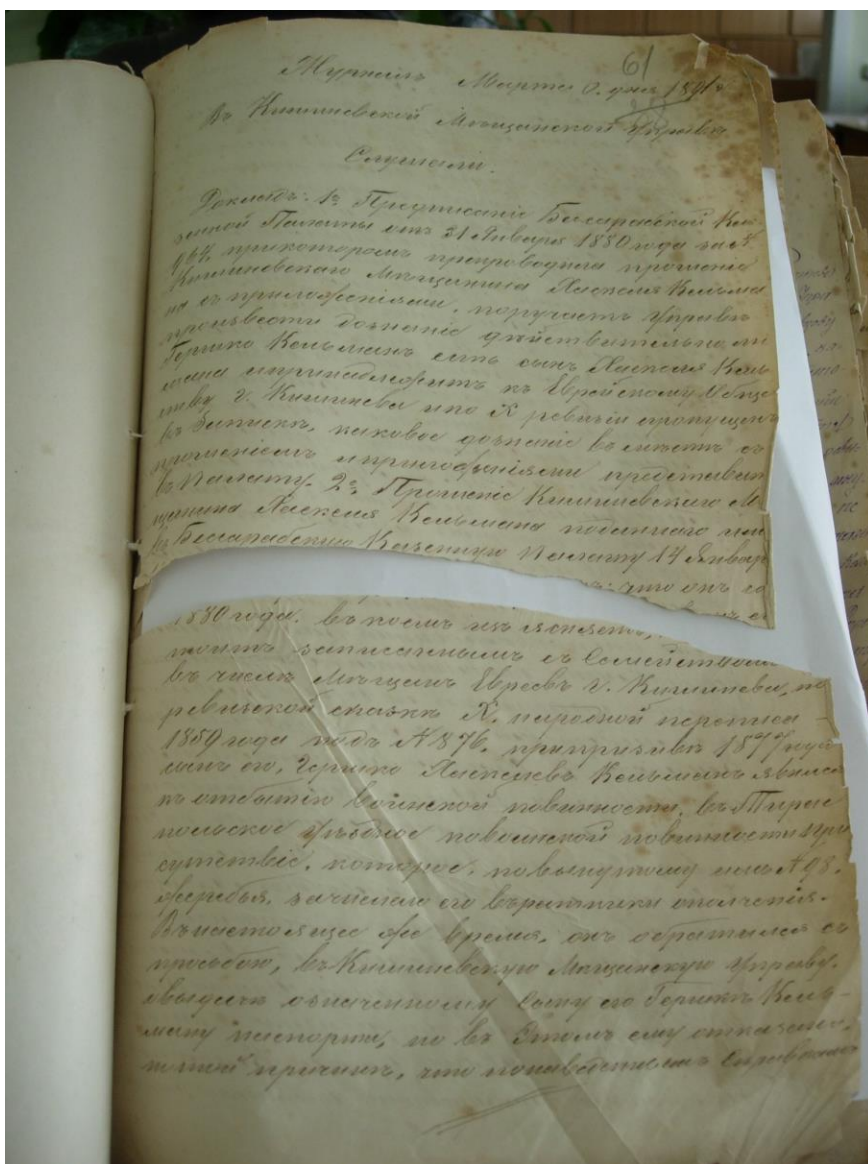 61
Журналъ Марта дня
Въ Кишиневской Мѣщанской Управѣ
Слушали.
Докладъ: 1е Предписаніе Бесарабской Ка-
зенной Палаты отъ 31 Января 1880 года за №
964, прикоторомъ препроводила прошеніе
Кишиневскаго Мѣщанина Хаскеля Кельма
на съ приложеніями, поручаетъ Управѣ
произвести дознаніе дѣйствительно ли
Гершко Кельманъ есть сынъ Хаскеля Кель
мана ипринадлежитъ къ Еврейскому Обще
ству г. Кишинева ипо Х ревизіи пропущенъ
въ Запискѣ, каковое дознаніе вмѣстѣ съ
прошеніемъ иприложеніями представит
въ Палату. 2е Прошеніе Кишиневскаго М
щанина Хаскеля Кельмана поданнаго им
въ Бессарабскую Казенную Палату 14 Январ
что онъ со
1880 года. въ коемъ изъясняетъ,
тоитъ записаннымъ съ Семействомъ
въ числѣ Мѣщанъ Евреевъ г. Кишинева, по
ревизской сказкѣ Х. народной переписи
1859 года подъ № 876. припризывѣ 1877 года
сынъ его, Гершко Хаскелевъ Кельманъ явился
къ отбытію воинской повинности, въ Тирас
польское Уѣздное повоинской повинности при
сутствіе, которое, повынутому имъ № 98.
жеребья, зачислило его въратники ополченія.
Внастоящее же время, онъ обратился съ
просьбою, въ Кишиневскую Мѣщанскую Управу,
овыдачѣ означенному сыну его Гершкѣ Кель-
ману паспорта, но въ Этомъ ему отказано,
потой причинѣ, что